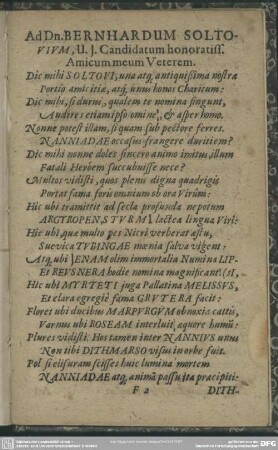 Ad Dn. BERNHARDUM SOLTO-
VIVM, U. J. Candidatum honoratiss.
Amicum meum Veterem.
Dic mihi SOLTOVI, una atq; antiquissima nostræ
Portio amicitiæ, atq; unus honos Charitum:
Dic mihi, si durus, qualem te nomina fingunt,
Audire es etiam ipso omine, & asper homo.
Nonne potest illam, si quam sub pectore ferres.
NANNIADÆ occasus frangere duritiem?
Dic mihi nonne doles sincero animo imitus illum
Fatali Heröem succubuisse nece?
Multos vidisti, quos pleni digna quadrigis
Portat fama sui vomatum ob ora Virûm:
Hic ubi tramittit ad secla profunda nepotum
ARGYROPEN, STVRMI lactea lingua Viri:
Hic ubi, qua multo pes Nicri verberat æstu,
Suevica TVBINGAE mœnia salva vigent:
Atq; ubi IENAM olim immortalia Numina LIP-
Et REVSNERA hodie nomina magnificant. (SI,
Hic ubi MYRTETI juga Pallatina MELISSVS,
Et clara egregiè fama GRVTERA facit:
Floret ubi ducibus MARPVRGVM obnoxia cattis,
Varnus ubi ROSEAM interluit æquore humũ:
Plures vidisti: Hos tamen inter NANNIVS unus
Non tibi DITHMARSO visus in orbe fuit.
Pol si elisuram scisses huic lumina mortem
NANNIADAE atq; animã passu ita præcipiti:
F 2 DITH-